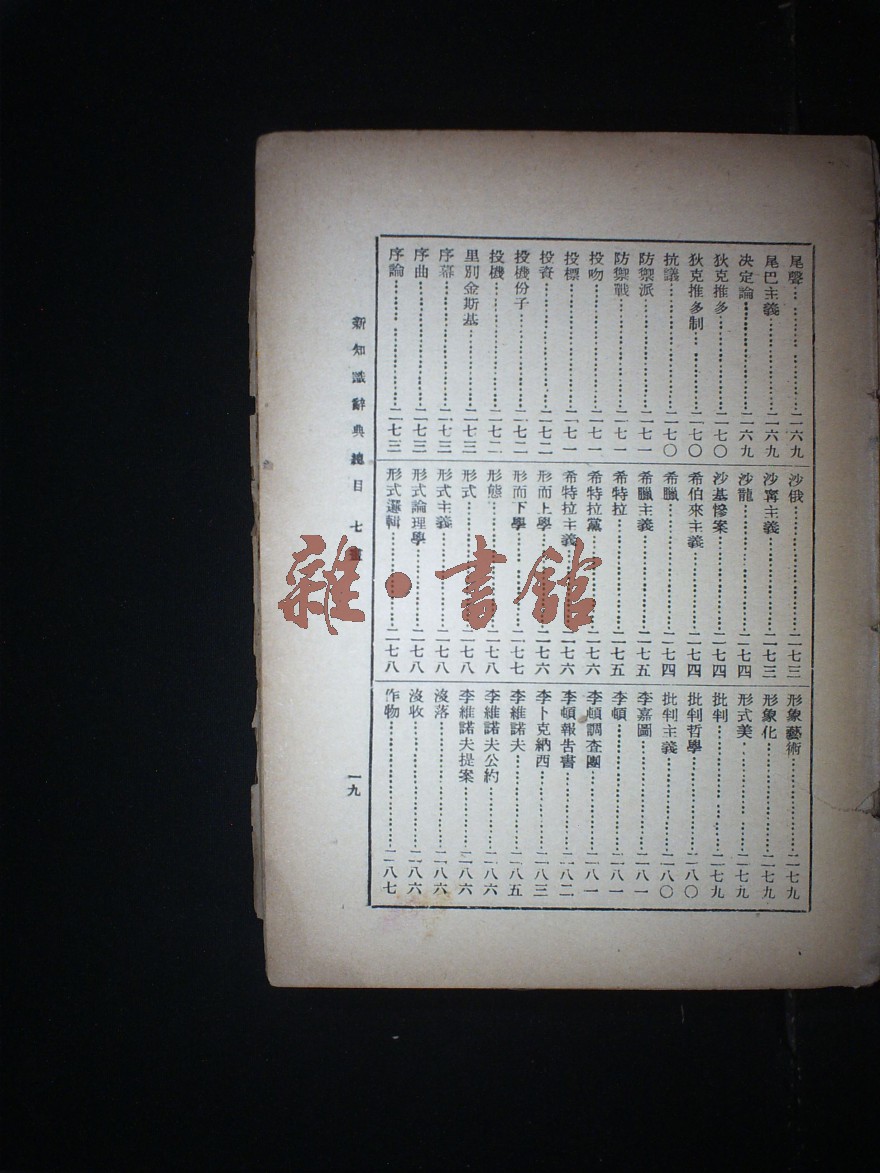 尾聲……………二六九
尾巴主義……………二六九
決定論……………二六九
狄克推多……………二七〇
狄克推多制……………二七〇
抗議……………二七〇
防禦派……………二七一
防禦戰……………二七一
投吻……………二七一
投標……………二七一
投資……………二七二
投機份子……………二七二
投機……………二七二
里別金斯基……………二七三
序幕……………二七三
序曲……………二七三
序論……………二七三
沙俄……………二七三
沙寗主義……………二七三
沙龍……………二七四
沙基慘案……………二七四
希伯來主義……………二七四
希臘……………二七四
希臘主義……………二七五
希特拉……………二七五
希特拉黨……………二七六
希特拉主義……………二七六
形而上學……………二七六
形而下學……………二七七
形態……………二七八
形式……………二七八
形式主義……………二七八
形式論理學……………二七八
形式邏輯……………二七八
形象藝術……………二七九
形象化……………二七九
形式美……………二七九
批判……………二七九
批判哲學……………二八〇
批判主義……………二八〇
李嘉圖……………二八一
李頓……………二八一
李頓調查團……………二八一
李頓報告書……………二八二
李卜克納西……………二八三
李維諾夫……………二八五
李維諾夫公約……………二八六
李維諾夫提案……………二八六
沒落……………二八六
沒收……………二八六
作物……………二八七
新知識辭典總目 七畫
一九
雜·書館